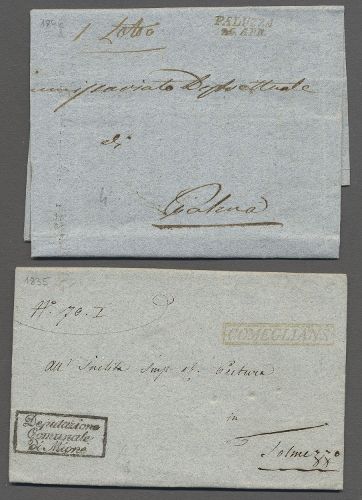 184
1 Lotto
PALUZZA
26. APR.
Commissariato Distrettuale
di
4
1835
N.° 70. I
COMEGLIANS
All' Inclita Imp. R. Pretura
in
Tolmezzo
Deputazione
Comunale
Di Mione